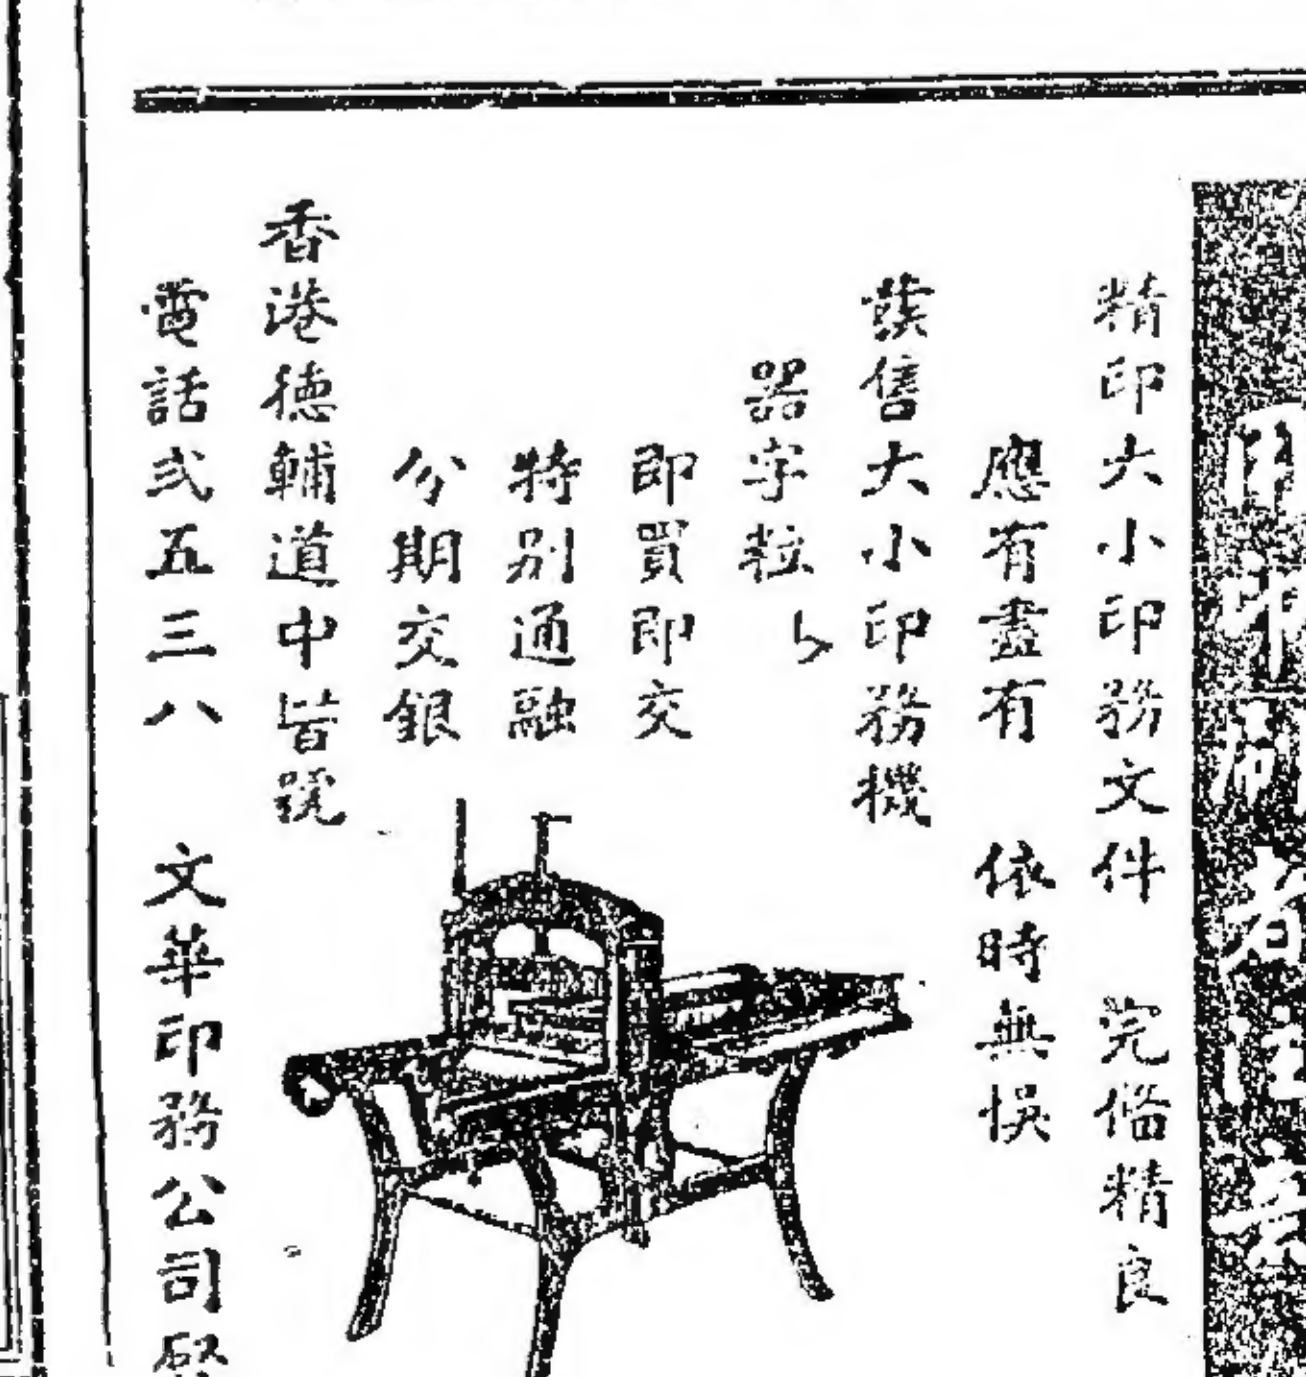 印務者注意
精印大小印務文件 完俻精良
應有盡有 依時無悮
發售大小印務機
器字粒
即買即交
特別通融
分期交銀
香港德輔道中號
電話弍五三八 文華印務公司啓